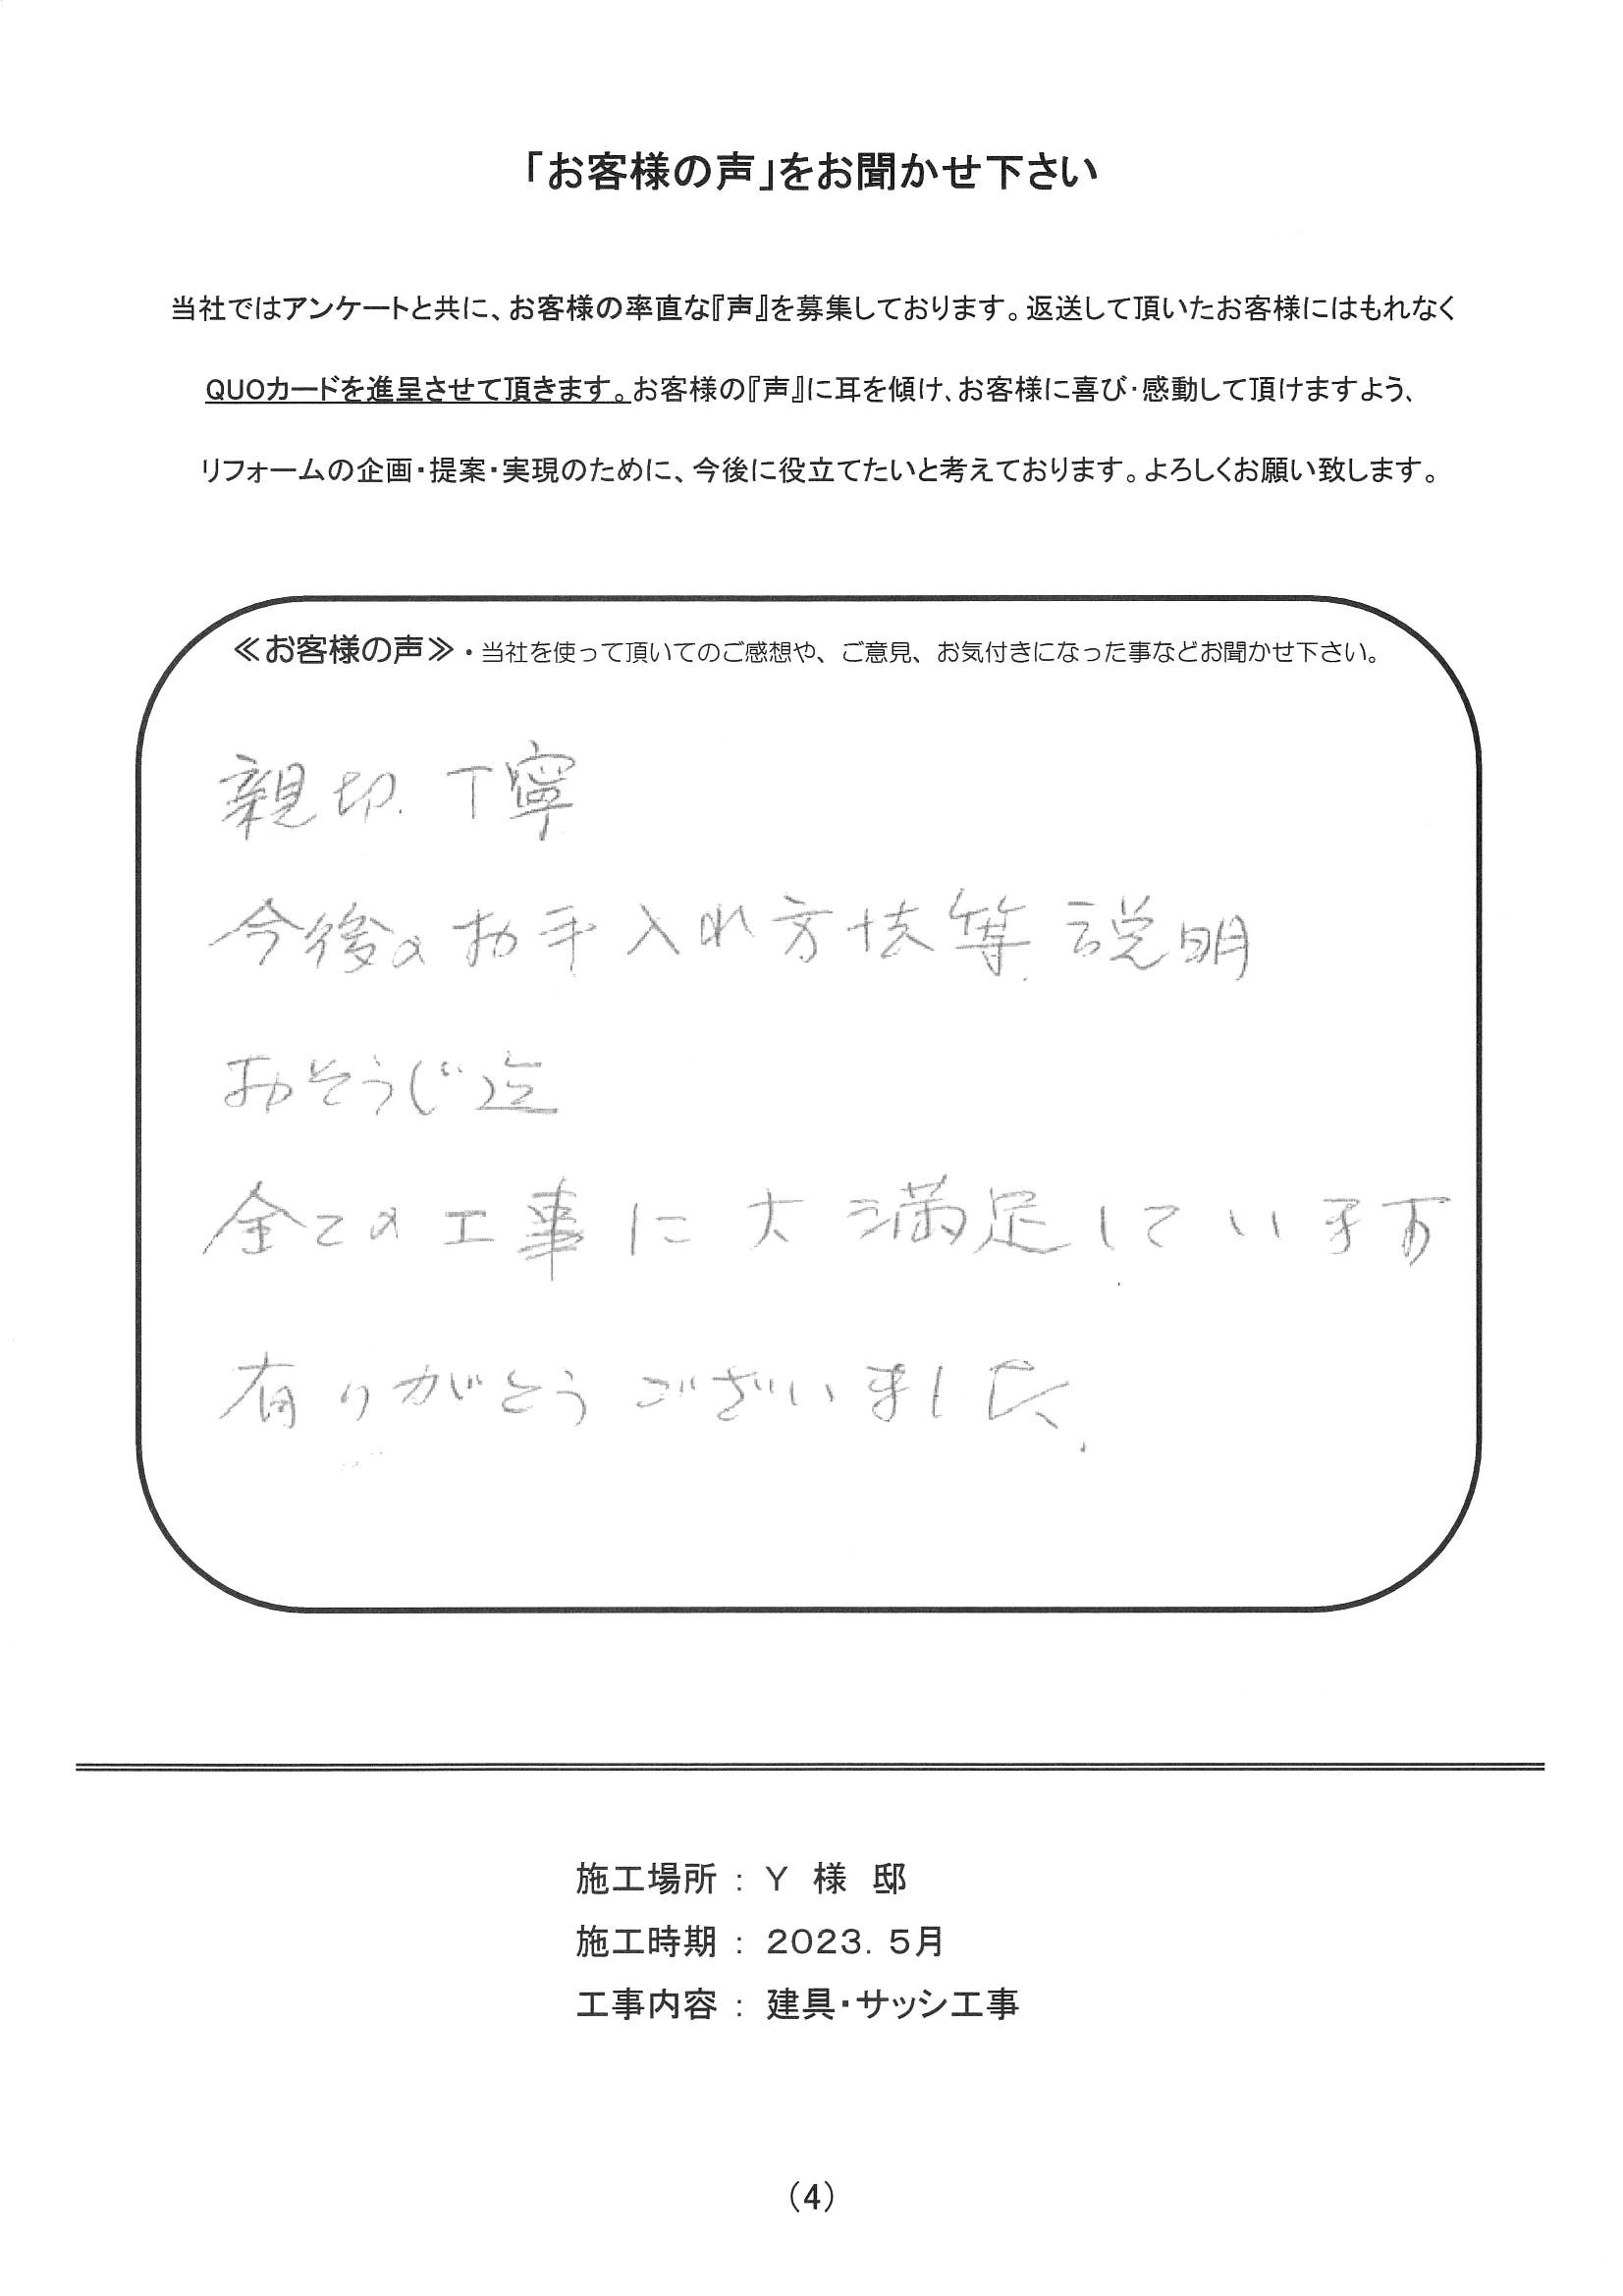 「お客様の声」をお聞かせ下さい
当社ではアンケートと共に、お客様の率直な『声』を募集しております。返送して頂いたお客様にはもれなく
QUOカードを進呈させて頂きます。お客様の『声』に耳を傾け、お客様に喜び・感動して頂けますよう、
リフォームの企画・提案・実現のために、今後に役立てたいと考えております。よろしくお願い致します。
≪お客様の声≫・当社を使って頂いてのご感想や、ご意見、お気付きになった事などお聞かせ下さい。
親切、丁寧
今後のお手入れ方法等、説明
おそうじ迄
全ての工事に大満足しています
有りがとうございました。
施工場所 : Y 様 邸
施工時期 : 2023. 5月
工事内容 : 建具・サッシ工事
(4)